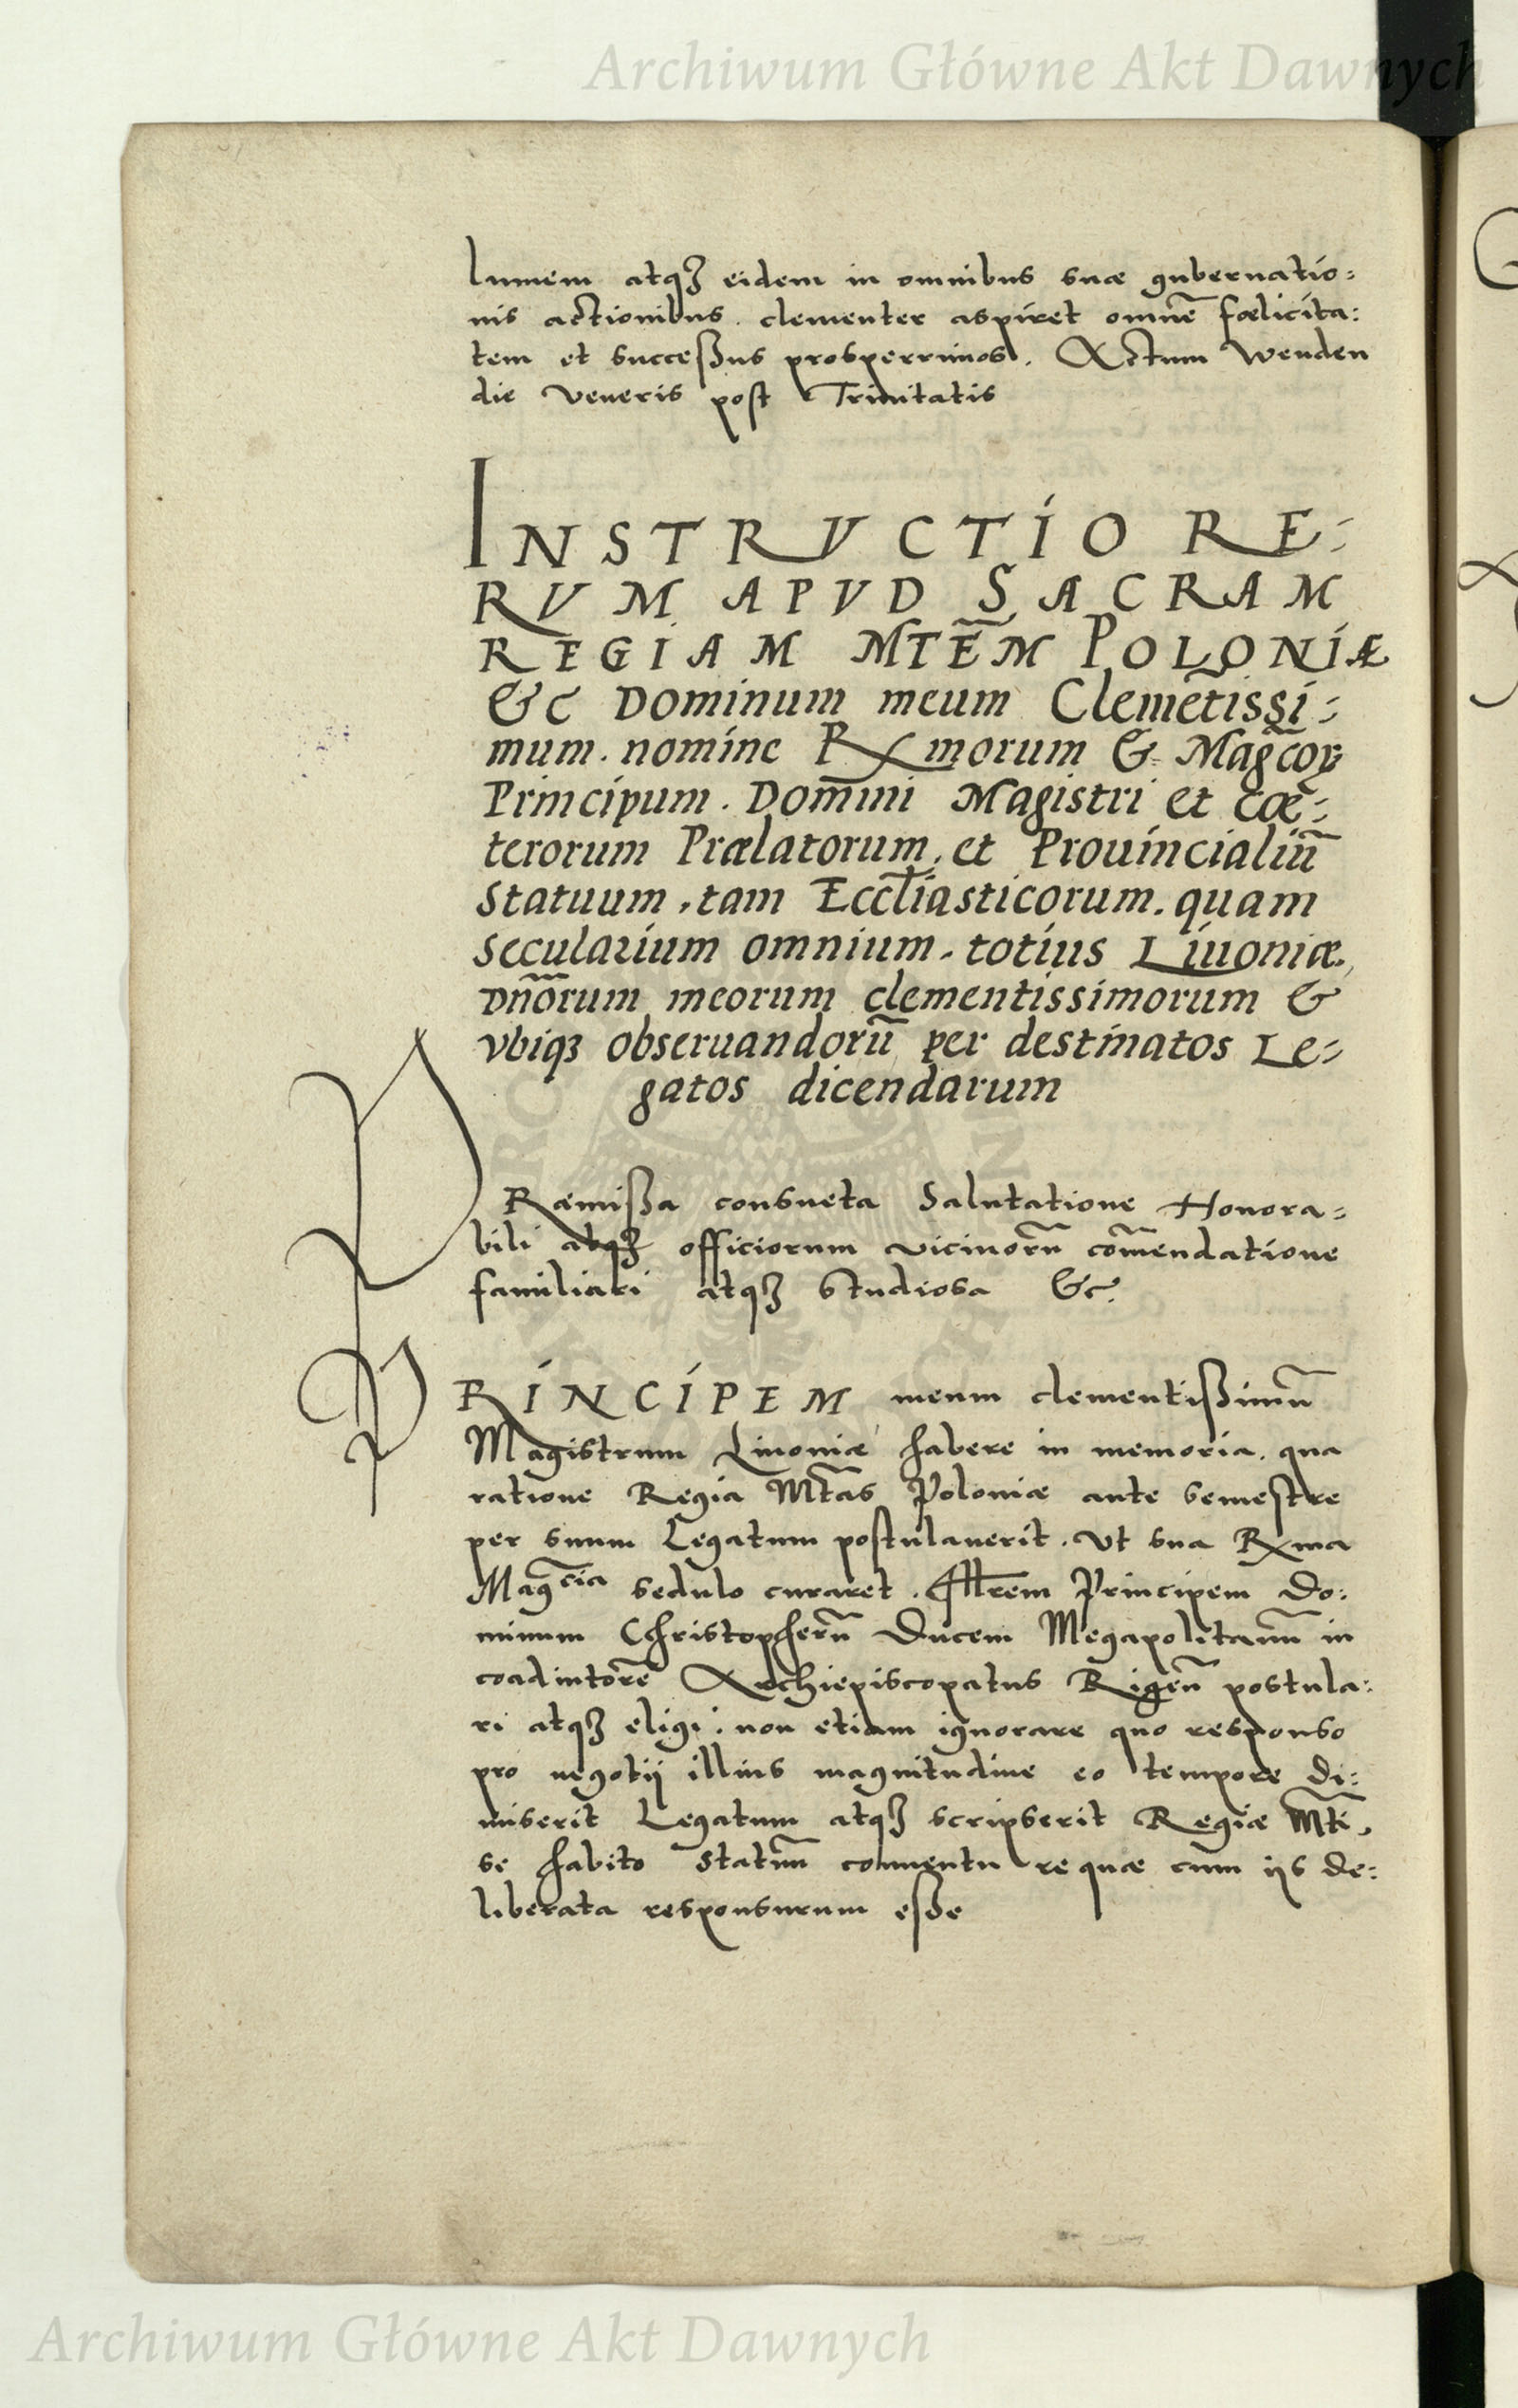 Archiwum Główne Akt Dawnych
lumem atqꝫ eidem in omnibus suæ gubernatio:
nis actionibus. clementer aspiret omnē fœlicita:
tem et succeßus prosperrimos. Actum Wenden
die Veneris post Trinitatis
INSTRVCTIO RE:
RVM APVD SACRAM
REGIAM MTẼM POLONIÆ
&c Dominum meum Clemētissi:
mum. nomine Rxmorum & Magcoꝝ
Principum. Domini Magistri et cæ:
terorum Prælatorum, et Prouincialiū
Statuum, tam Eccl̄iasticorum. quam
secularium omnium. totius Liuoniæ.
Dn̄orum meorum clementissimorum &
vbiqꝫ obseruandorū per destinatos Le:
gatos dicendarum
PRæmißa consueta Salutatione Honora:
bili atqꝫ officiorum vicinorū com̄endatione
familiari atqꝫ studiosa &c.
PRINCIPEM meum clementißimū
Magistrum Liuoniæ habere in memoria. qua
ratione Regia Mtas̄ Poloniæ ante semestre
per suum Legatum postulauerit. Vt sua Rxma
Magcia sedulo curaret. Illrem Principem Do:
minum Christopherū Ducem Megapolitanū in
coadiutorē Archiepiscopatus Rigeñ postula:
ri atqꝫ eligi: non etiam ignorare quo responso
pro negotij illius magnitudine eo tempore di:
miserit Legatum atqꝫ scripserit Regiæ Mti̅,
se habito statuū conuentu re quæ cum ijs de:
liberata responsurum eße
Archiwum Główne Akt Dawnych